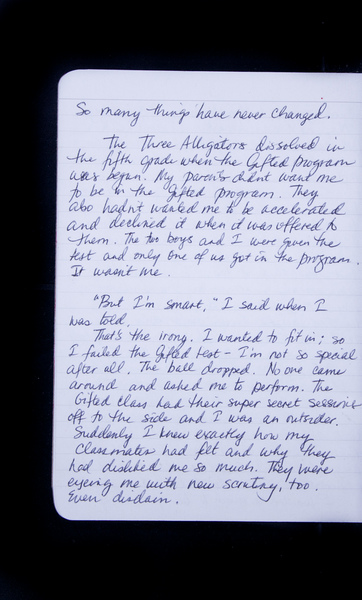 So many things have never changed.
The Three Alligators dissolved in
the fifth grade when the Gifted program
was began. My parents didnt want me
to be in the gifted program. They
also hadn't wanted me to be accelerated
and declined it when it was offered to
them. The two boys and I were given the
test and only one of us got in the program.
It wasn't me.
"But I'm smart," I said when I
was told.
That's the irony. I wanted to fit in; so
I failed the Gifted test - I'm not so special
after all. The ball dropped. No one came
around and asked me to perform. The
Gifted Class had their super secret sessions
off to the side and I was an outsider.
Suddenly I knew exactly how my
classmates had felt and why they
had disliked me so much. They were
eyeing me with new scrutiny, too.
Even disdain.